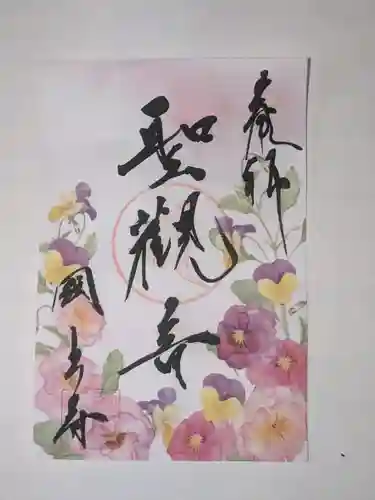 奉拝
聖観音
國上寺